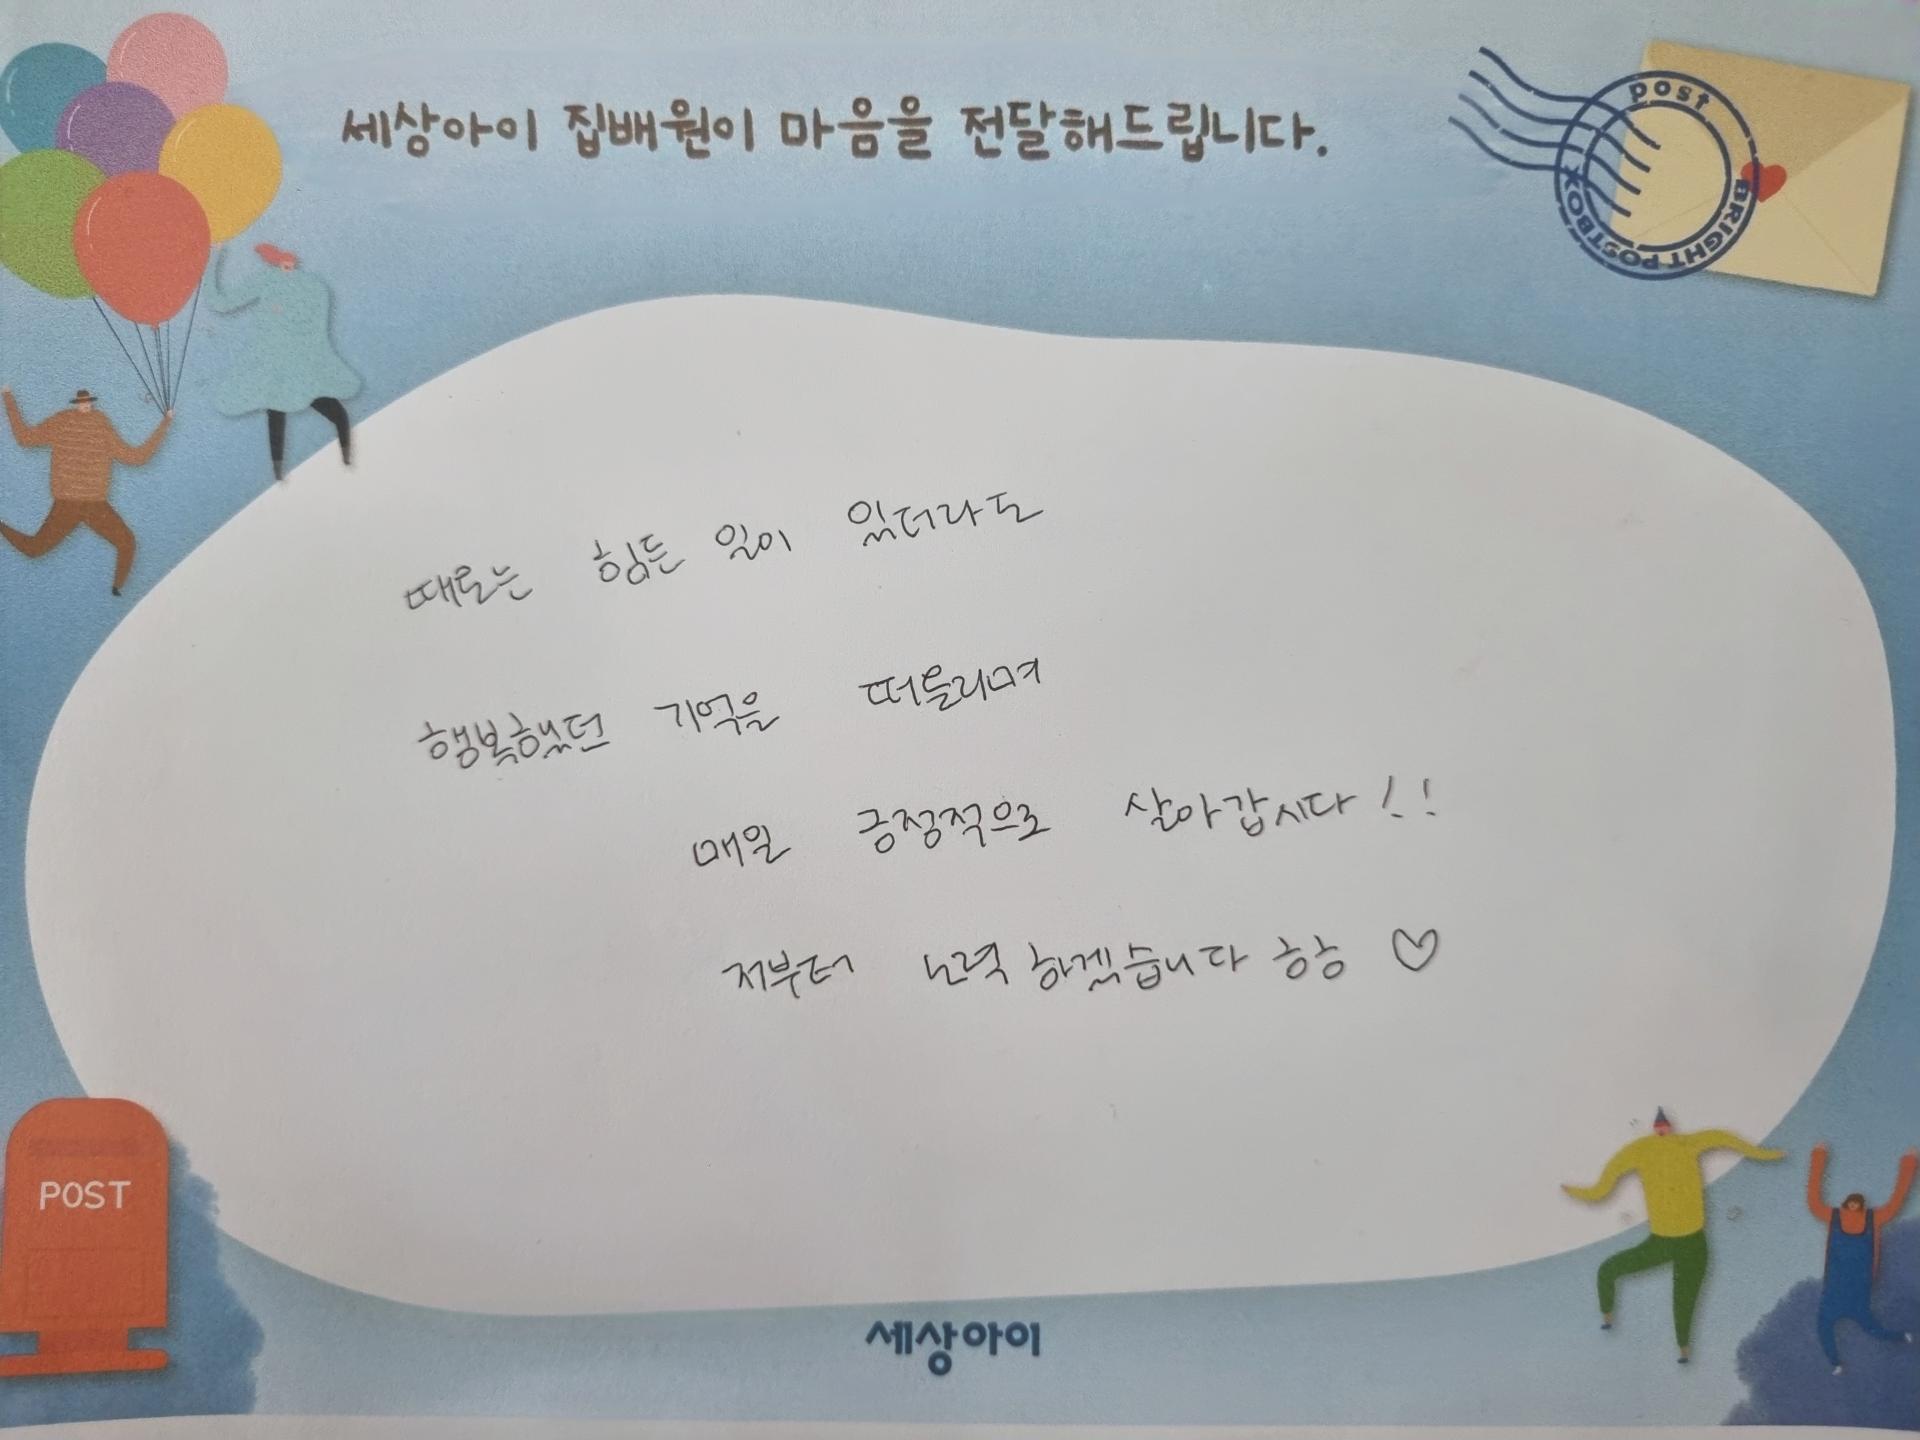 세상아이 집배원이 마음을 전달해드립니다.
post
BRIGHT POSTBOX
때로는 힘든 일이 있더라도
행복했던 기억을 떠올리며
매일 긍정적으로 살아갑시다!!
저부터 노력하겠습니다 항상 ♡
POST
세상아이